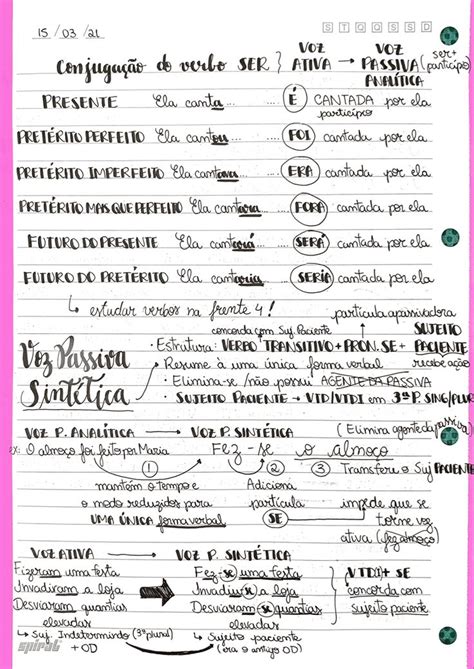 15 / 03 / 21
S T Q Q S S D
Conjugação do verbo SER } VOZ ATIVA → VOZ PASSIVA ANALÍTICA (ser + particípio)
PRESENTE Ela canta... É CANTADA por ela
particípio
PRETÉRITO PERFEITO Ela cantou... FOI cantada por ela
PRETÉRITO IMPERFEITO Ela cantava... ERA cantada por ela
PRETÉRITO MAIS QUE PERFEITO Ela cantara... FORA cantada por ela
FUTURO DO PRESENTE Ela cantará... SERÁ cantada por ela
FUTURO DO PRETÉRITO Ela cantaria... SERIA cantada por ela
↳ estudar verbos na frente 4!
partícula apassivadora
concorda com Suj. Paciente
Voz Passiva Sintética
• Estrutura: VERBO TRANSITIVO + PRON. SE + SUJEITO PACIENTE
recebe ação
• Resume à uma única forma verbal
• Elimina-se / não possui AGENTE DA PASSIVA
• SUJEITO PACIENTE → VTD/VTDI em 3ª P. SING/PLUR
VOZ P. ANALÍTICA → VOZ P. SINTÉTICA (Elimina agente da passiva)
ex: O almoço foi feito por Maria Fez - se o almoço
1 2 3 Transfere o Suj PACIENTE
mantém o tempo e Adiciona
o modo reduzidos para partícula impede que se
UMA ÚNICA forma verbal SE torne voz
ativa (fez almoço)
VOZ ATIVA → VOZ P. SINTÉTICA
Fizeram uma festa Fez-se uma festa VTDI + SE
Invadiram a loja Invadiu-se a loja concorda com
Desviaram quantias Desviaram-se quantias sujeito paciente
elevadas elevadas
↳ Suj. Indeterminado (3ª plural) ↳ Sujeito paciente
+ OD (era o antigo OD)
spiral